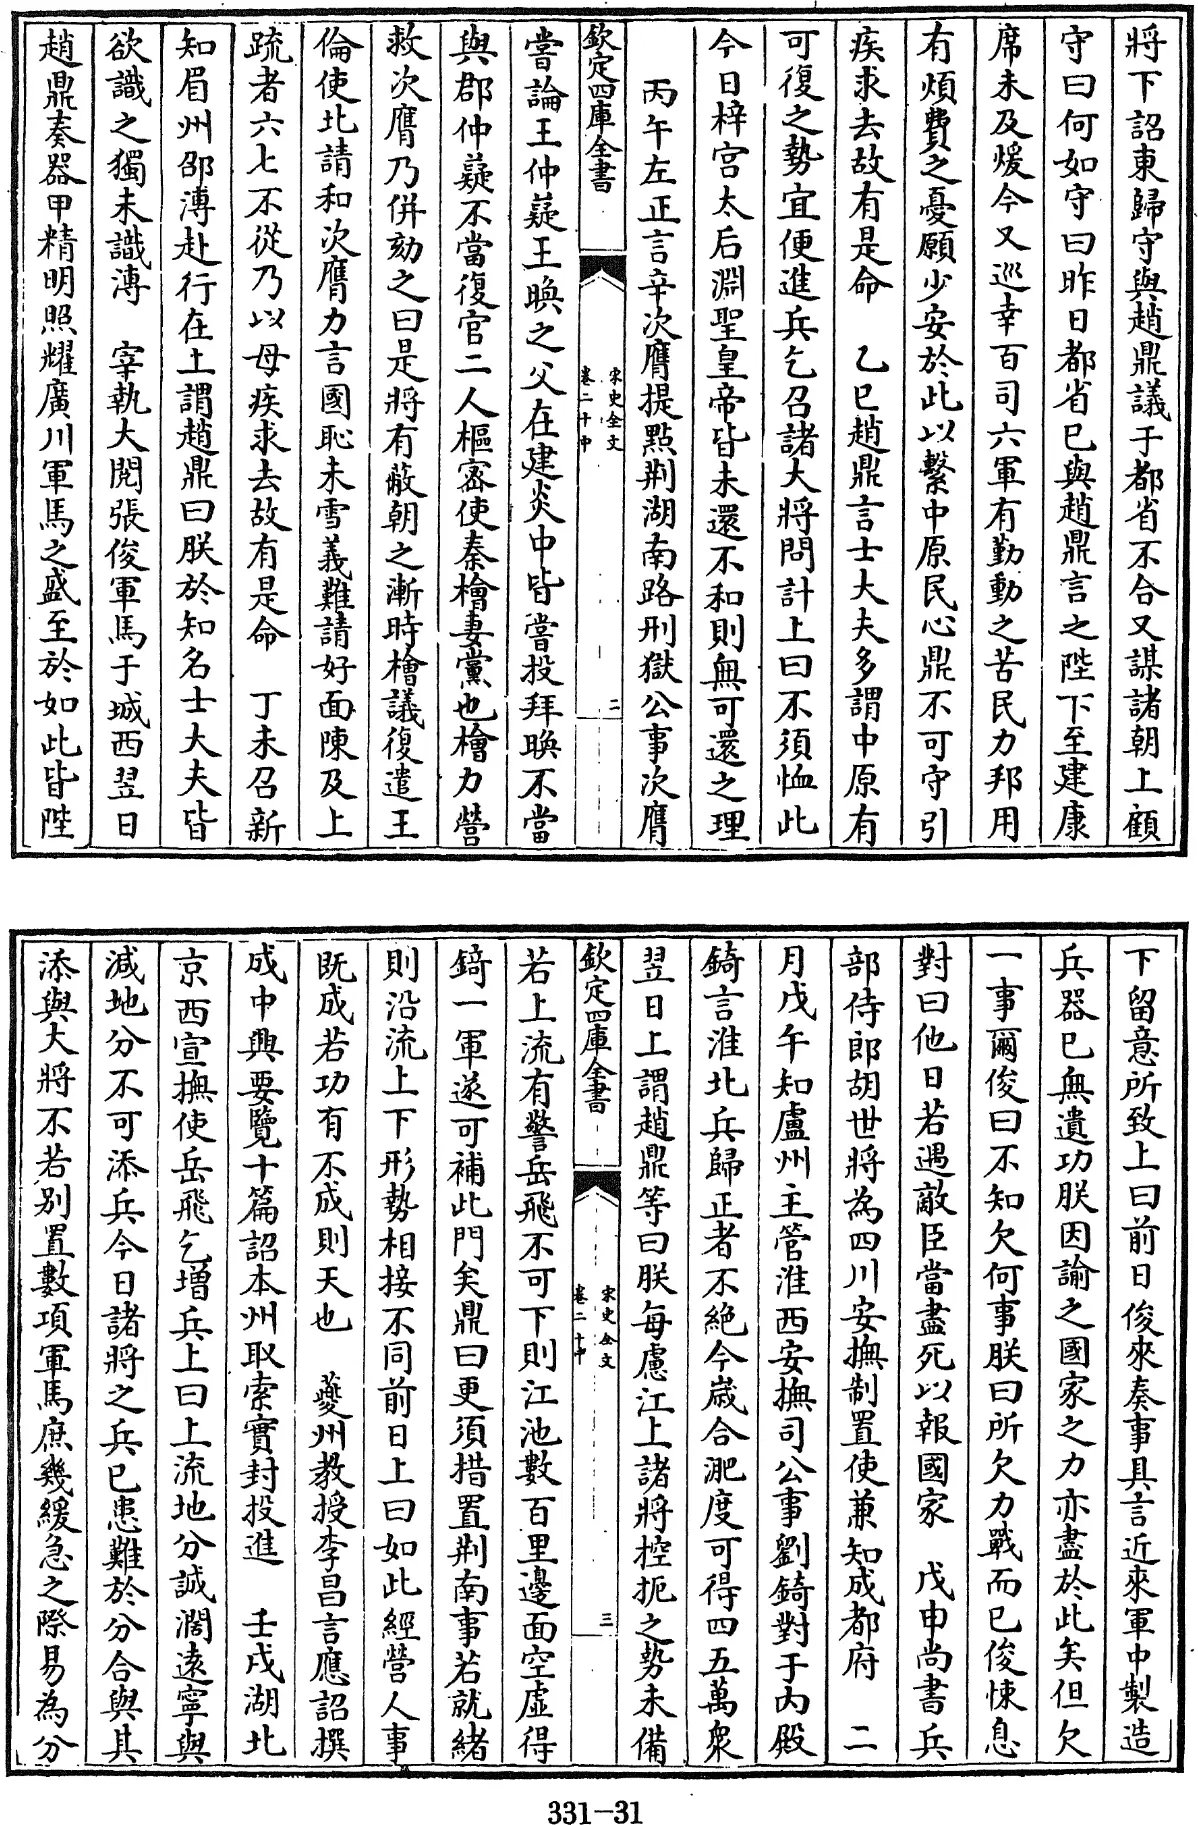 將下詔東歸守與趙鼎議于都省不合又謀諸朝上顧
守曰何如守曰昨日都省已與趙鼎言之陛下至建康
席未及煖今又巡幸百司六軍有勤動之苦民力邦用
有煩費之憂願少安於此以繫中原民心鼎不可守引
疾求去故有是命　乙巳趙鼎言士大夫多謂中原有
可復之勢宜便進兵乞召諸大將問計上曰不須恤此
今日梓宮太后淵聖皇帝皆未還不和則無可還之理
丙午左正言辛次膺提點荆湖南路刑獄公事次膺
欽定四庫全書
宋史全文
卷二十中
二
嘗論王仲薿王㬇之父在建炎中皆嘗投拜㬇不當
與郡仲薿不當復官二人樞密使秦檜妻黨也檜力營
救次膺乃併劾之曰是將有蔽朝之漸時檜議復遣王
倫使北請和次膺力言國恥未雪義難請好面陳及上
疏者六七不從乃以母疾求去故有是命　丁未召新
知眉州邵溥赴行在上謂趙鼎曰朕於知名士大夫皆
欲識之獨未識溥　宰執大閱張俊軍馬于城西翌日
趙鼎奏器甲精明照耀廣川軍馬之盛至於如此皆陛
下留意所致上曰前日俊來奏事具言近來軍中製造
兵器已無遺功朕因諭之國家之力亦盡於此矣但欠
一事爾俊曰不知欠何事朕曰所欠力戰而已俊悚息
對曰他日若遇敵臣當盡死以報國家　戊申尚書兵
部侍郎胡世將為四川安撫制置使兼知成都府　二
月戊午知盧州主管淮西安撫司公事劉錡對于内殿
錡言淮北兵歸正者不絶今歳合淝度可得四五萬衆
翌日上謂趙鼎等曰朕每慮江上諸將控扼之勢未備
欽定四庫全書
宋史全文
卷二十中
三
若上流有警岳飛不可下則江池數百里邊面空虛得
錡一軍遂可補此門矣鼎曰更須措置荆南事若就緒
則沿流上下形勢相接不同前日上曰如此經營人事
既成若功有不成則天也　夔州教授李昌言應詔撰
成中興要覽十篇詔本州取索實封投進　壬戌湖北
京西宣撫使岳飛乞增兵上曰上流地分誠濶遠寧與
減地分不可添兵今日諸將之兵已患難於分合與其
添與大將不若别置數項軍馬庶幾緩急之際易為分
331-31